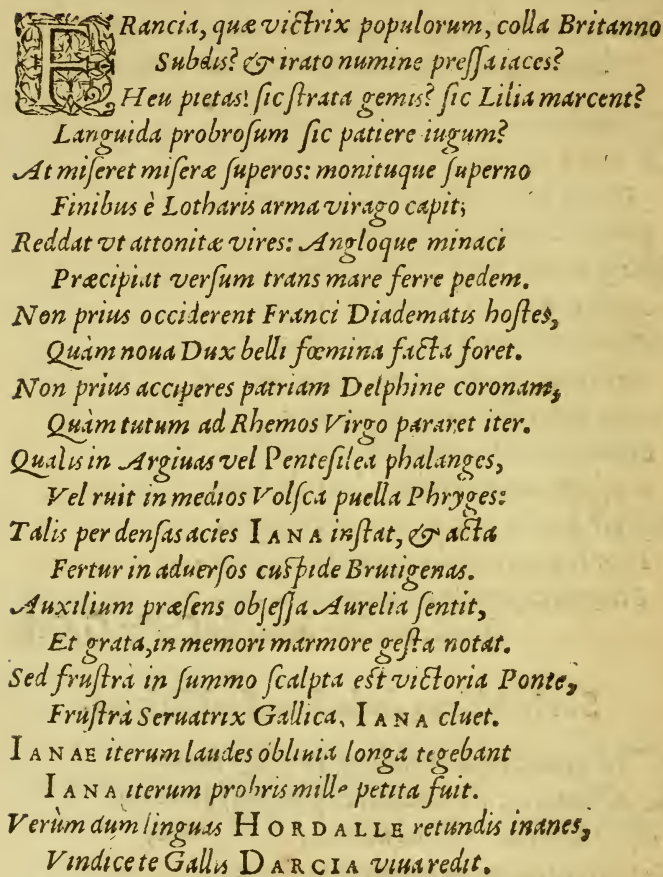 FRancia, quæ victrix populorum, colla Britanno
Subdis? & irato numine preſſa iaces?
Heu pietas! ſic ſtrata gemis? ſic Lilia marcent?
Languida probroſum ſic patiere iugum?
At miſeret miſeræ ſuperos: monituque ſuperno
Finibus è Lotharis arma virago capit;
Reddat vt attonitæ vires: Angloque minaci
Præcipiat verſum trans mare ferre pedem.
Non prius occiderent Franci Diadematis hoſtes,
Quàm noua Dux belli fœmina facta foret.
Non prius acciperes patriam Delphine coronam,
Quàm tutum ad Rhemos Virgo pararet iter.
Qualis in Argiuas vel Penteſilea phalanges,
Vel ruit in medios Volſca puella Phryges:
Talis per denſas acies IANA inſtat, & acta
Fertur in aduerſos cuſpide Brutigenas.
Auxilium præſens obſeſſa Aurelia ſentit,
Et grata, in memori marmore geſta notat.
Sed fruſtrà in ſummo ſcalpta eſt victoria Ponte,
Fruſtrà Seruatrix Gallica, IANA cluet.
IANAE iterum laudes obliuia longa tegebant
IANA iterum probris mille petita fuit.
Verùm dum linguas HORDALLE retundis inanes,
Vindice te Gallis DARCIA viua redit.